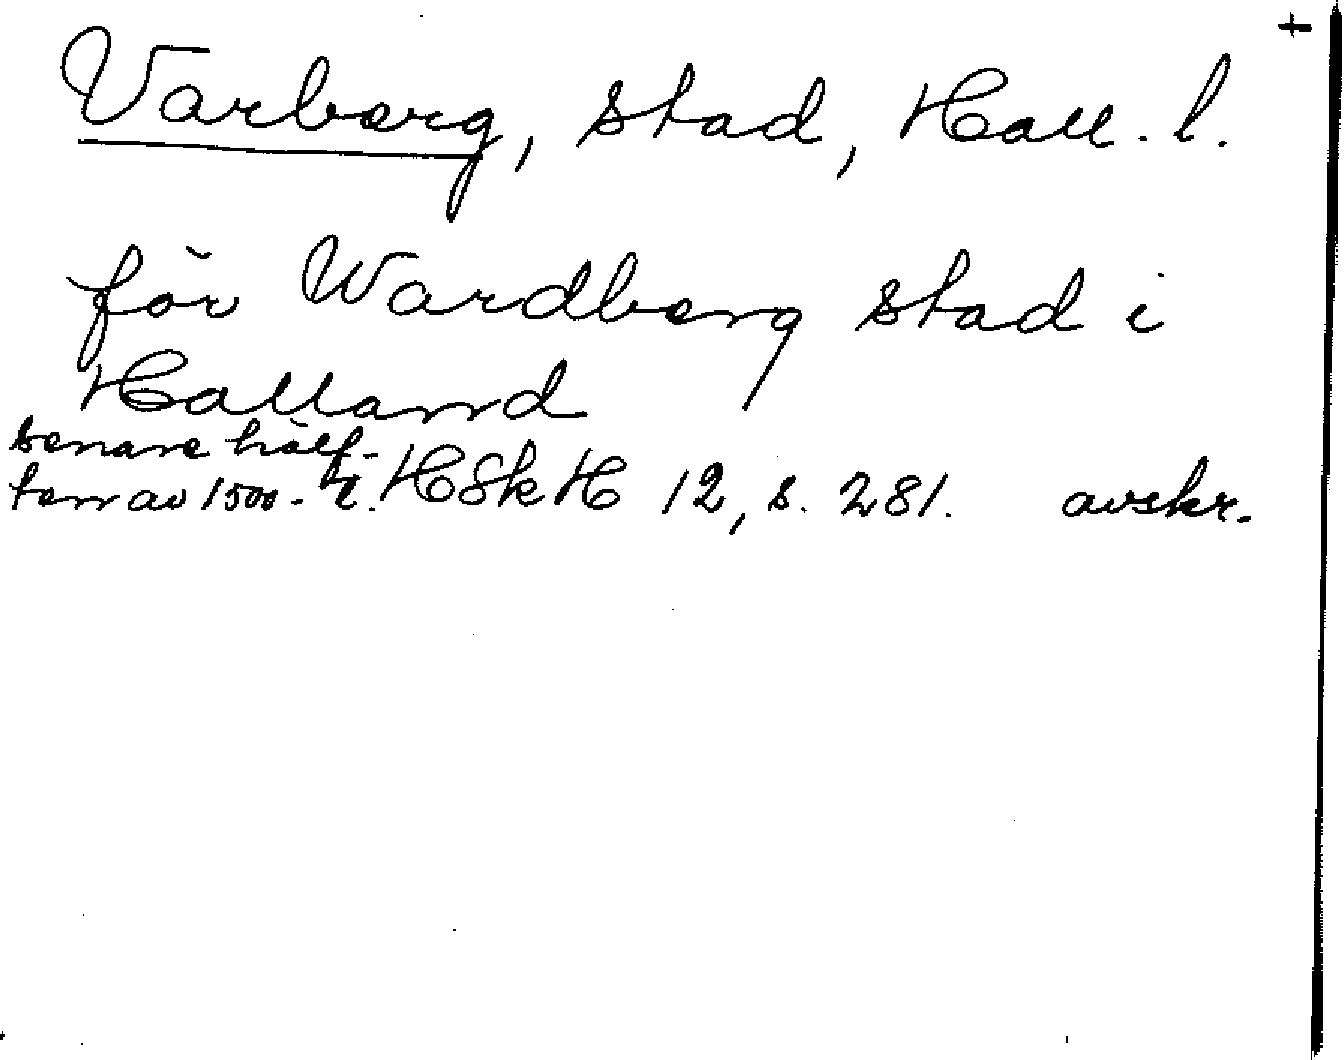 +
Varberg, stad, Hall. l.
för Wardberg stad i
Halland
senare hälf-
ten av 1500-t. HSkH 12, s. 281. avskr.